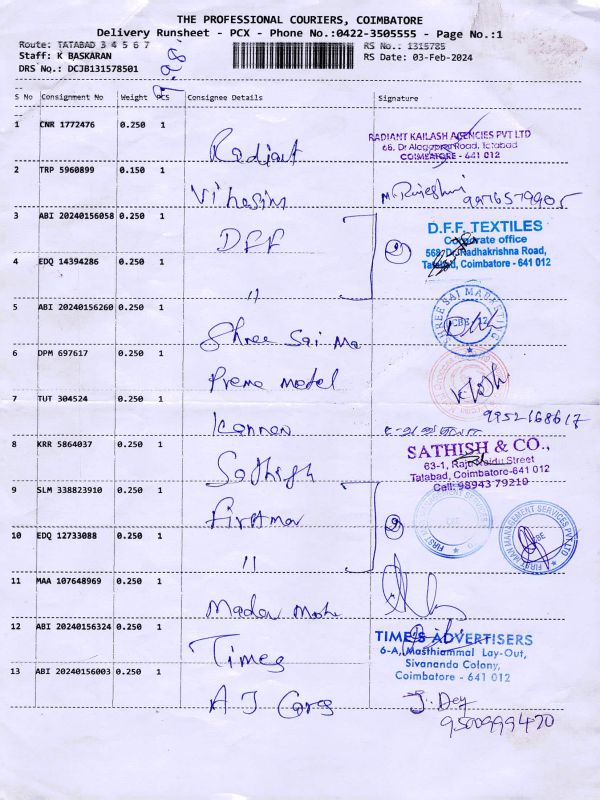 THE PROFESSIONAL COURIERS, COIMBATORE
Delivery Runsheet - PCX - Phone No.:0422-3505555 - Page No.:1
Route: TATABAD 3 4 5 6 7
RS No.: 1315785
Staff: K BASKARAN
RS Date: 03-Feb-2024
DRS No.: DCJB131578501
S No Consignment No Weight PCS Consignee Details Signature
1 CNR 1772476 0.250 1 Radiant
RADIANT KAILASH AGENCIES PVT LTD
66, Dr Alagappa Road, Tatabad
COIMBATORE - 641 012
2 TRP 5960899 0.150 1
9976579905
3 ABI 20240156058 0.250 1 DFF
D.F.F TEXTILES
Corporate office
568, Dr. Radhakrishna Road,
Tatabad, Coimbatore - 641 012
2
4 EDQ 14394286 0.250 1 "
5 ABI 20240156260 0.250 1 Shree Sai Ma
SHREE SAI MARKETING
CBE - 12
6 DPM 697617 0.250 1 Preme metel
7 TUT 304524 0.250 1 Kannan
9952168617
8 KRR 5864037 0.250 1 Sathish
SATHISH & CO.,
63-1, Raju Naidu Street
Tatabad, Coimbatore-641 012
Cell: 98943 79210
9 SLM 338823910 0.250 1 Firstman
2
FIRSTMAN MANAGEMENT SERVICES PVT LTD
CBE
10 EDQ 12733088 0.250 1 "
11 MAA 107648969 0.250 1 Madan
12 ABI 20240156324 0.250 1 Times
TIME'S ADVERTISERS
6-A, Masthiammal Lay-Out,
Sivananda Colony,
Coimbatore - 641 012
13 ABI 20240156003 0.250 1 A J Cars
J. Dey
9500999420